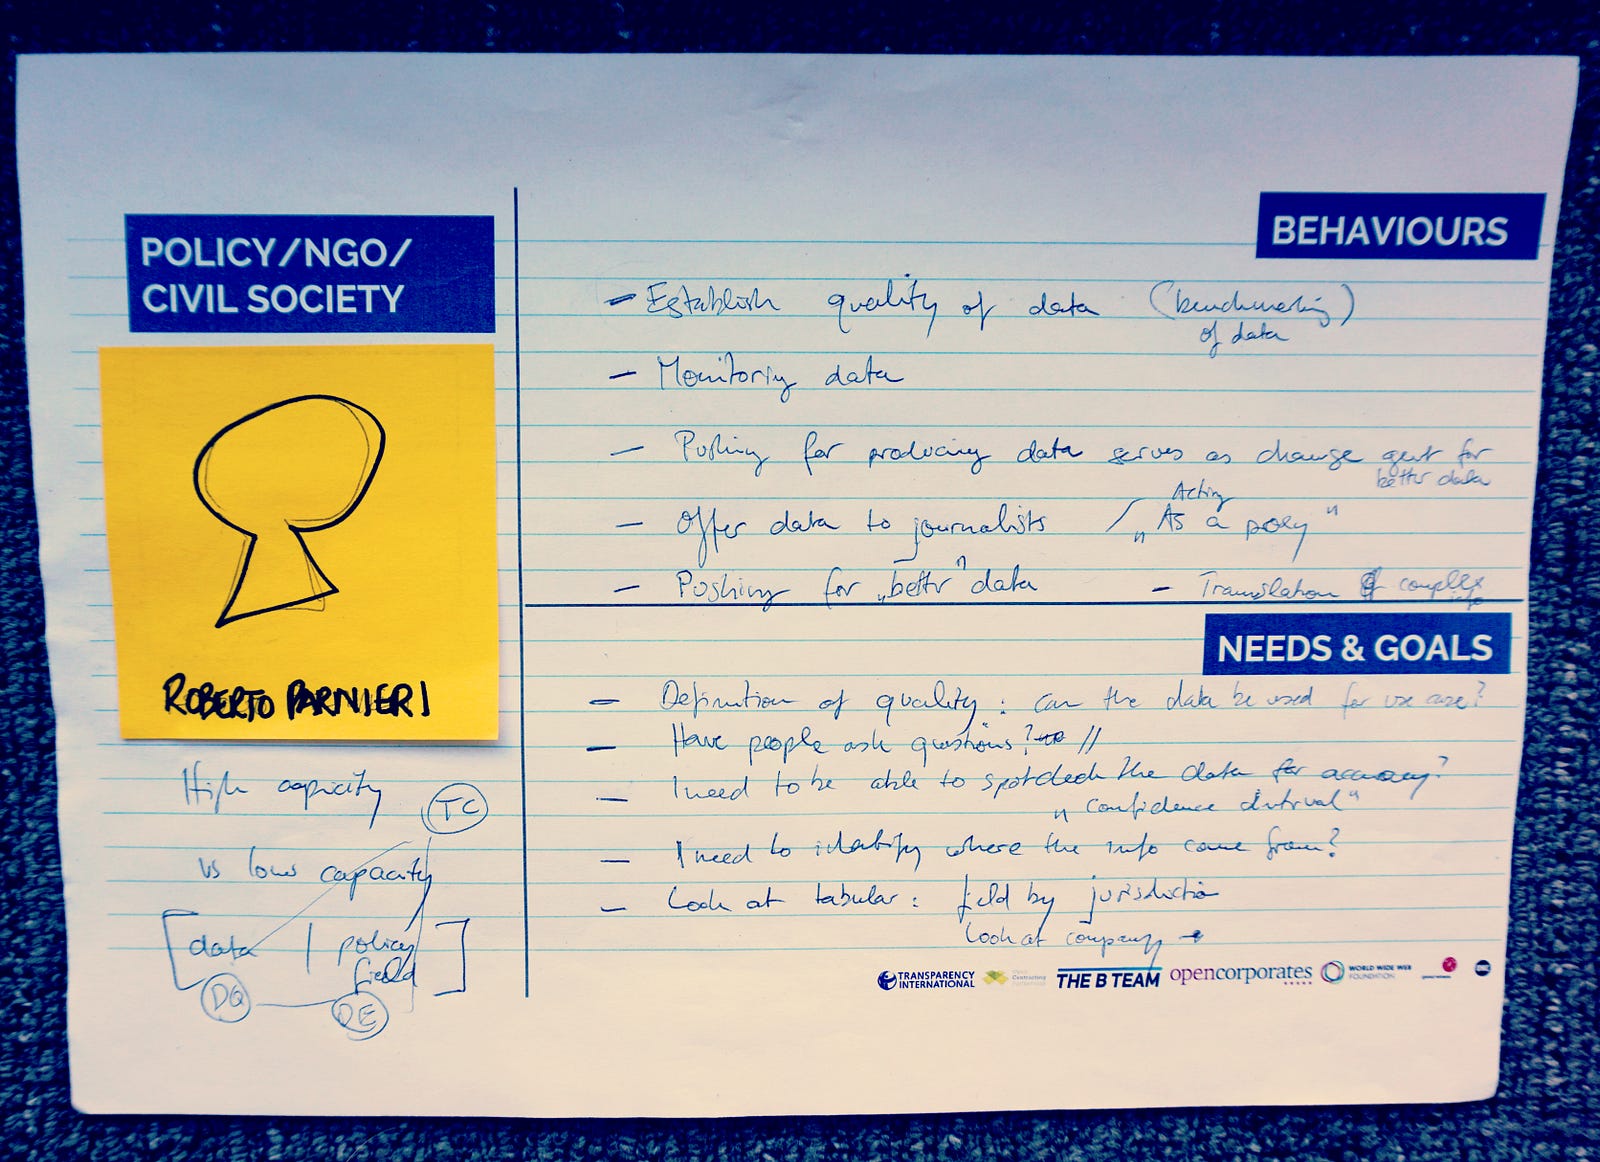 POLICY/NGO/
CIVIL SOCIETY
ROBERTO PARNIERI
High capacity
TC
vs low capacity
[data | policy
field]
DQ
DE
BEHAVIOURS
- Establish quality of data (benchmarking)
of data
- Monitoring data
- Pushing for producing data serves as change agent for
better data
- Offer data to journalists / Acting
"As a proxy"
- Pushing for "better" data - Translation of complex
info
NEEDS & GOALS
- Definition of quality: can the data be used for use case?
- Have people ask questions? //
- I need to be able to spotcheck the data for accuracy?
"Confidence interval"
- I need to identify where the info come from?
- Look at tabular: field by jurisdiction
Look at company
TRANSPARENCY
INTERNATIONAL
Open
Contracting
THE B TEAM
opencorporates
WORLD WIDE WEB
FOUNDATION
ONE